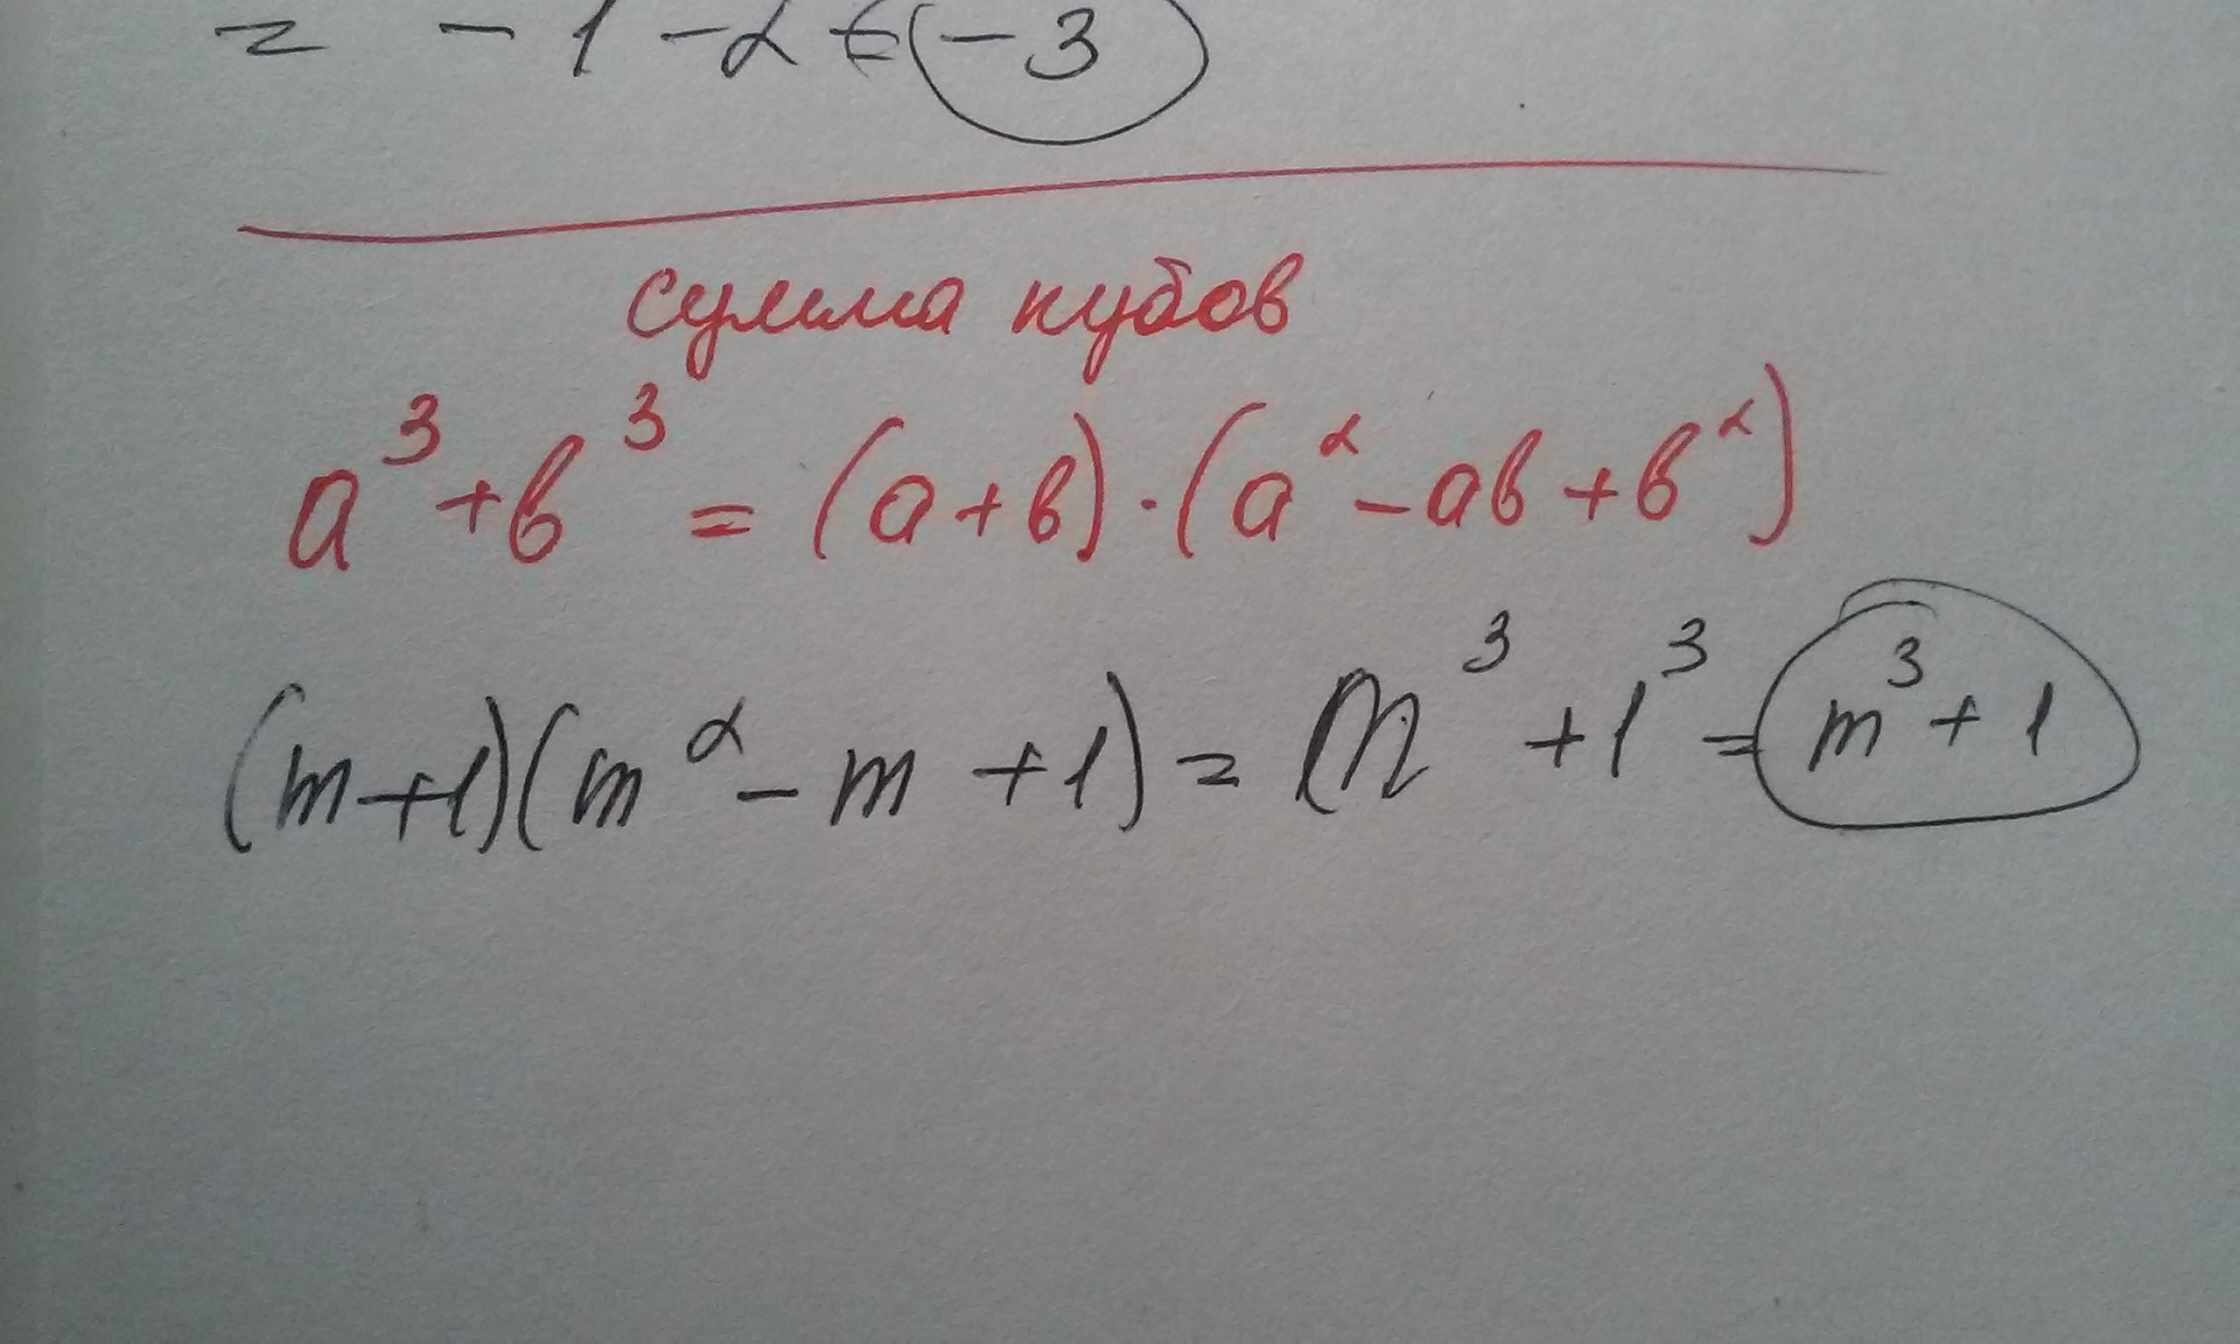 = - 1 - 2 = -3
сумма кубов
a³+в³ = (а+в)·(а²-ав+в²)
(m+1)(m²-m+1)=m³+1³=m³+1